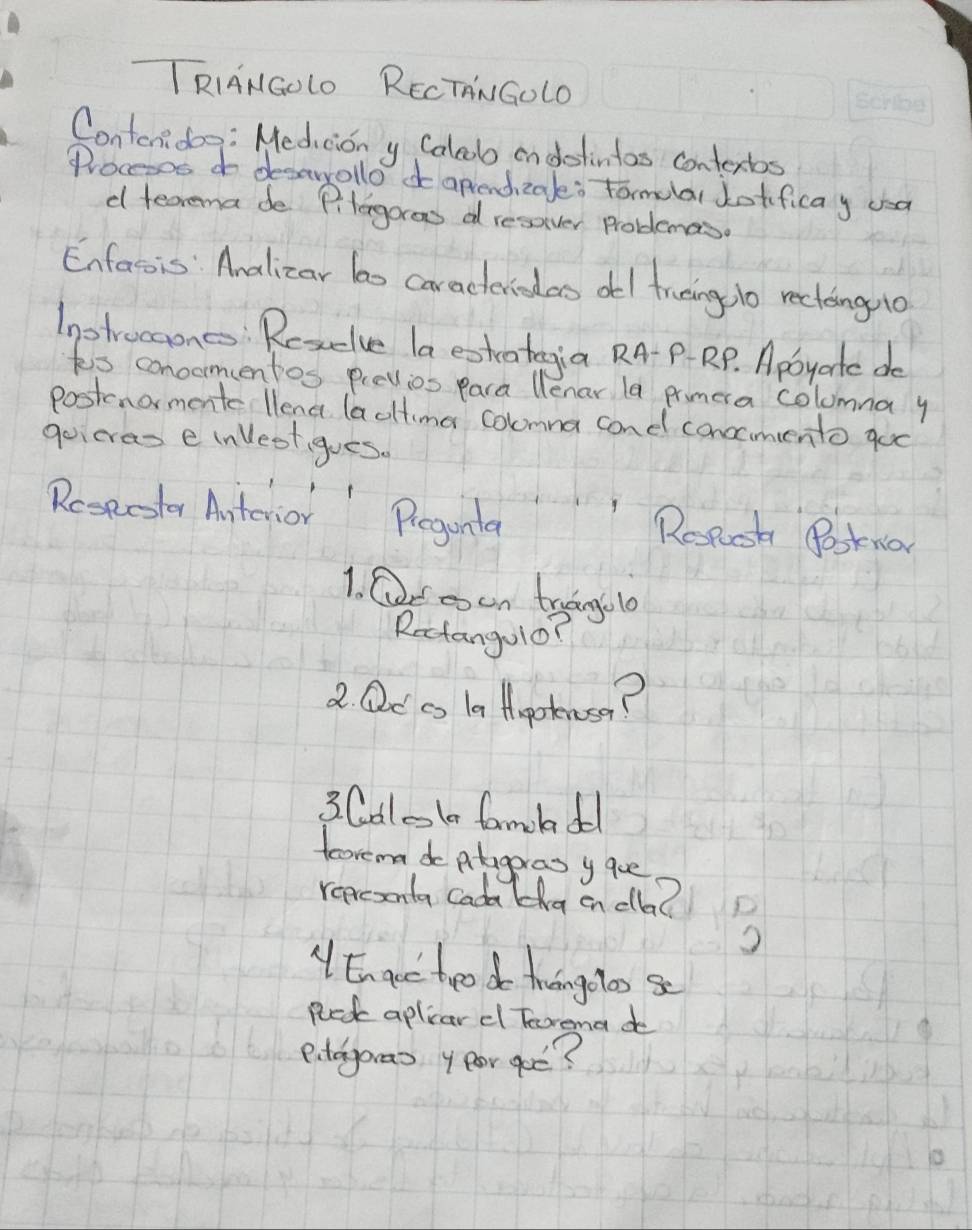 TRIÁNGULO RECTÁNGULO
Scribe
Contenidos: Medición y Calculo en distintos contextos
Procesos de desarrollo de aprendizaje: Formular Justifica y usa
el teorema de Pitágoras al resolver problemas.
Énfasis: Analizar las características del triángulo rectángulo.
Instrucciones: Resuelve la estrategia RA-P-RP. Apóyate de
tus conocimientos previos para llenar la primera columna y
posteriormente llena la ultima columna con el conocimiento que
quieras e investigues.
Respuesta Anterior Pregunta Respuesta Posterior
1. Qué es un triángulo
Rectangulo?
2. Qué es la Hipotenusa?
3. Cuál es la formula del
teorema de pitagoras y que
representa cada letra en ella?
4 En qué tipo de triángulos se
puede aplicar el Teorema de
pitágoras y por qué?